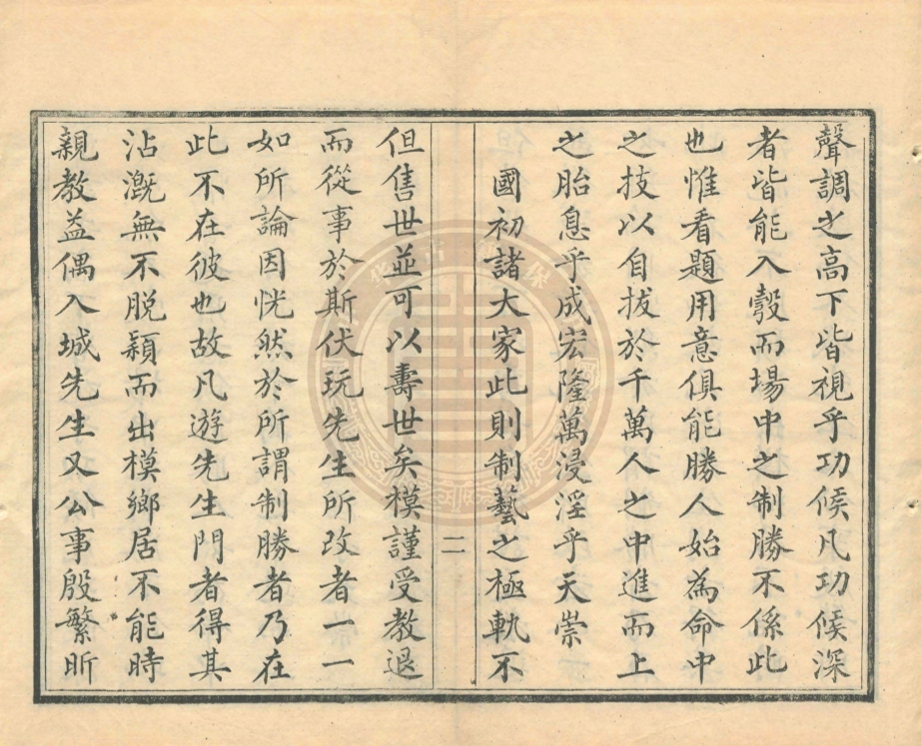 聲調之高下皆視乎功候凡功候深
者皆能入彀而場中之制勝不係此
也惟看題用意俱能勝人始為命中
之技以自拔於千萬人之中進而上
之胎息乎成宏隆萬浸淫乎天崇
國初諸大家此則制藝之極軌不
二
但售世並可以壽世矣模謹受教退
而從事於斯伏玩先生所改者一一
如所論因恍然於所謂制勝者乃在
此不在彼也故凡遊先生門者得其
沾溉無不脫穎而出模鄉居不能時
親教益偶入城先生又公事殷繁昕